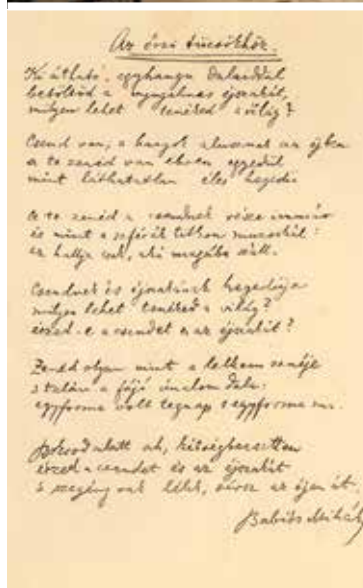 Az őszi tücsökhöz.
Ki átható, egyhangu dalaiddal
betöltöd a nyugalmas éjszakát,
milyen lehet tenéked a világ?
Csend van, a hangok alusznak az éjben
a te zenéd van ébren egyedül
mint láthatatlan éles hegedű
A te zenéd a csendnek része immár
és mint a szférák titkon muzsikál:
az hallja csak, aki magába száll.
Csendnek és éjszakának hegedűje
milyen lehet tenéked a világ?
érzed-e a csendet s az éjszakát?
Zenéd olyan mint a lelkem zenéje
s talán a fájó unalom dala:
egyforma volt tegnap s egyforma ma.
Bokrod alatt oh, kétségbeesetten
érzed a csendet és az éjszakát
s szegény vak lélek, sírsz az éjen át.
Babits Mihály